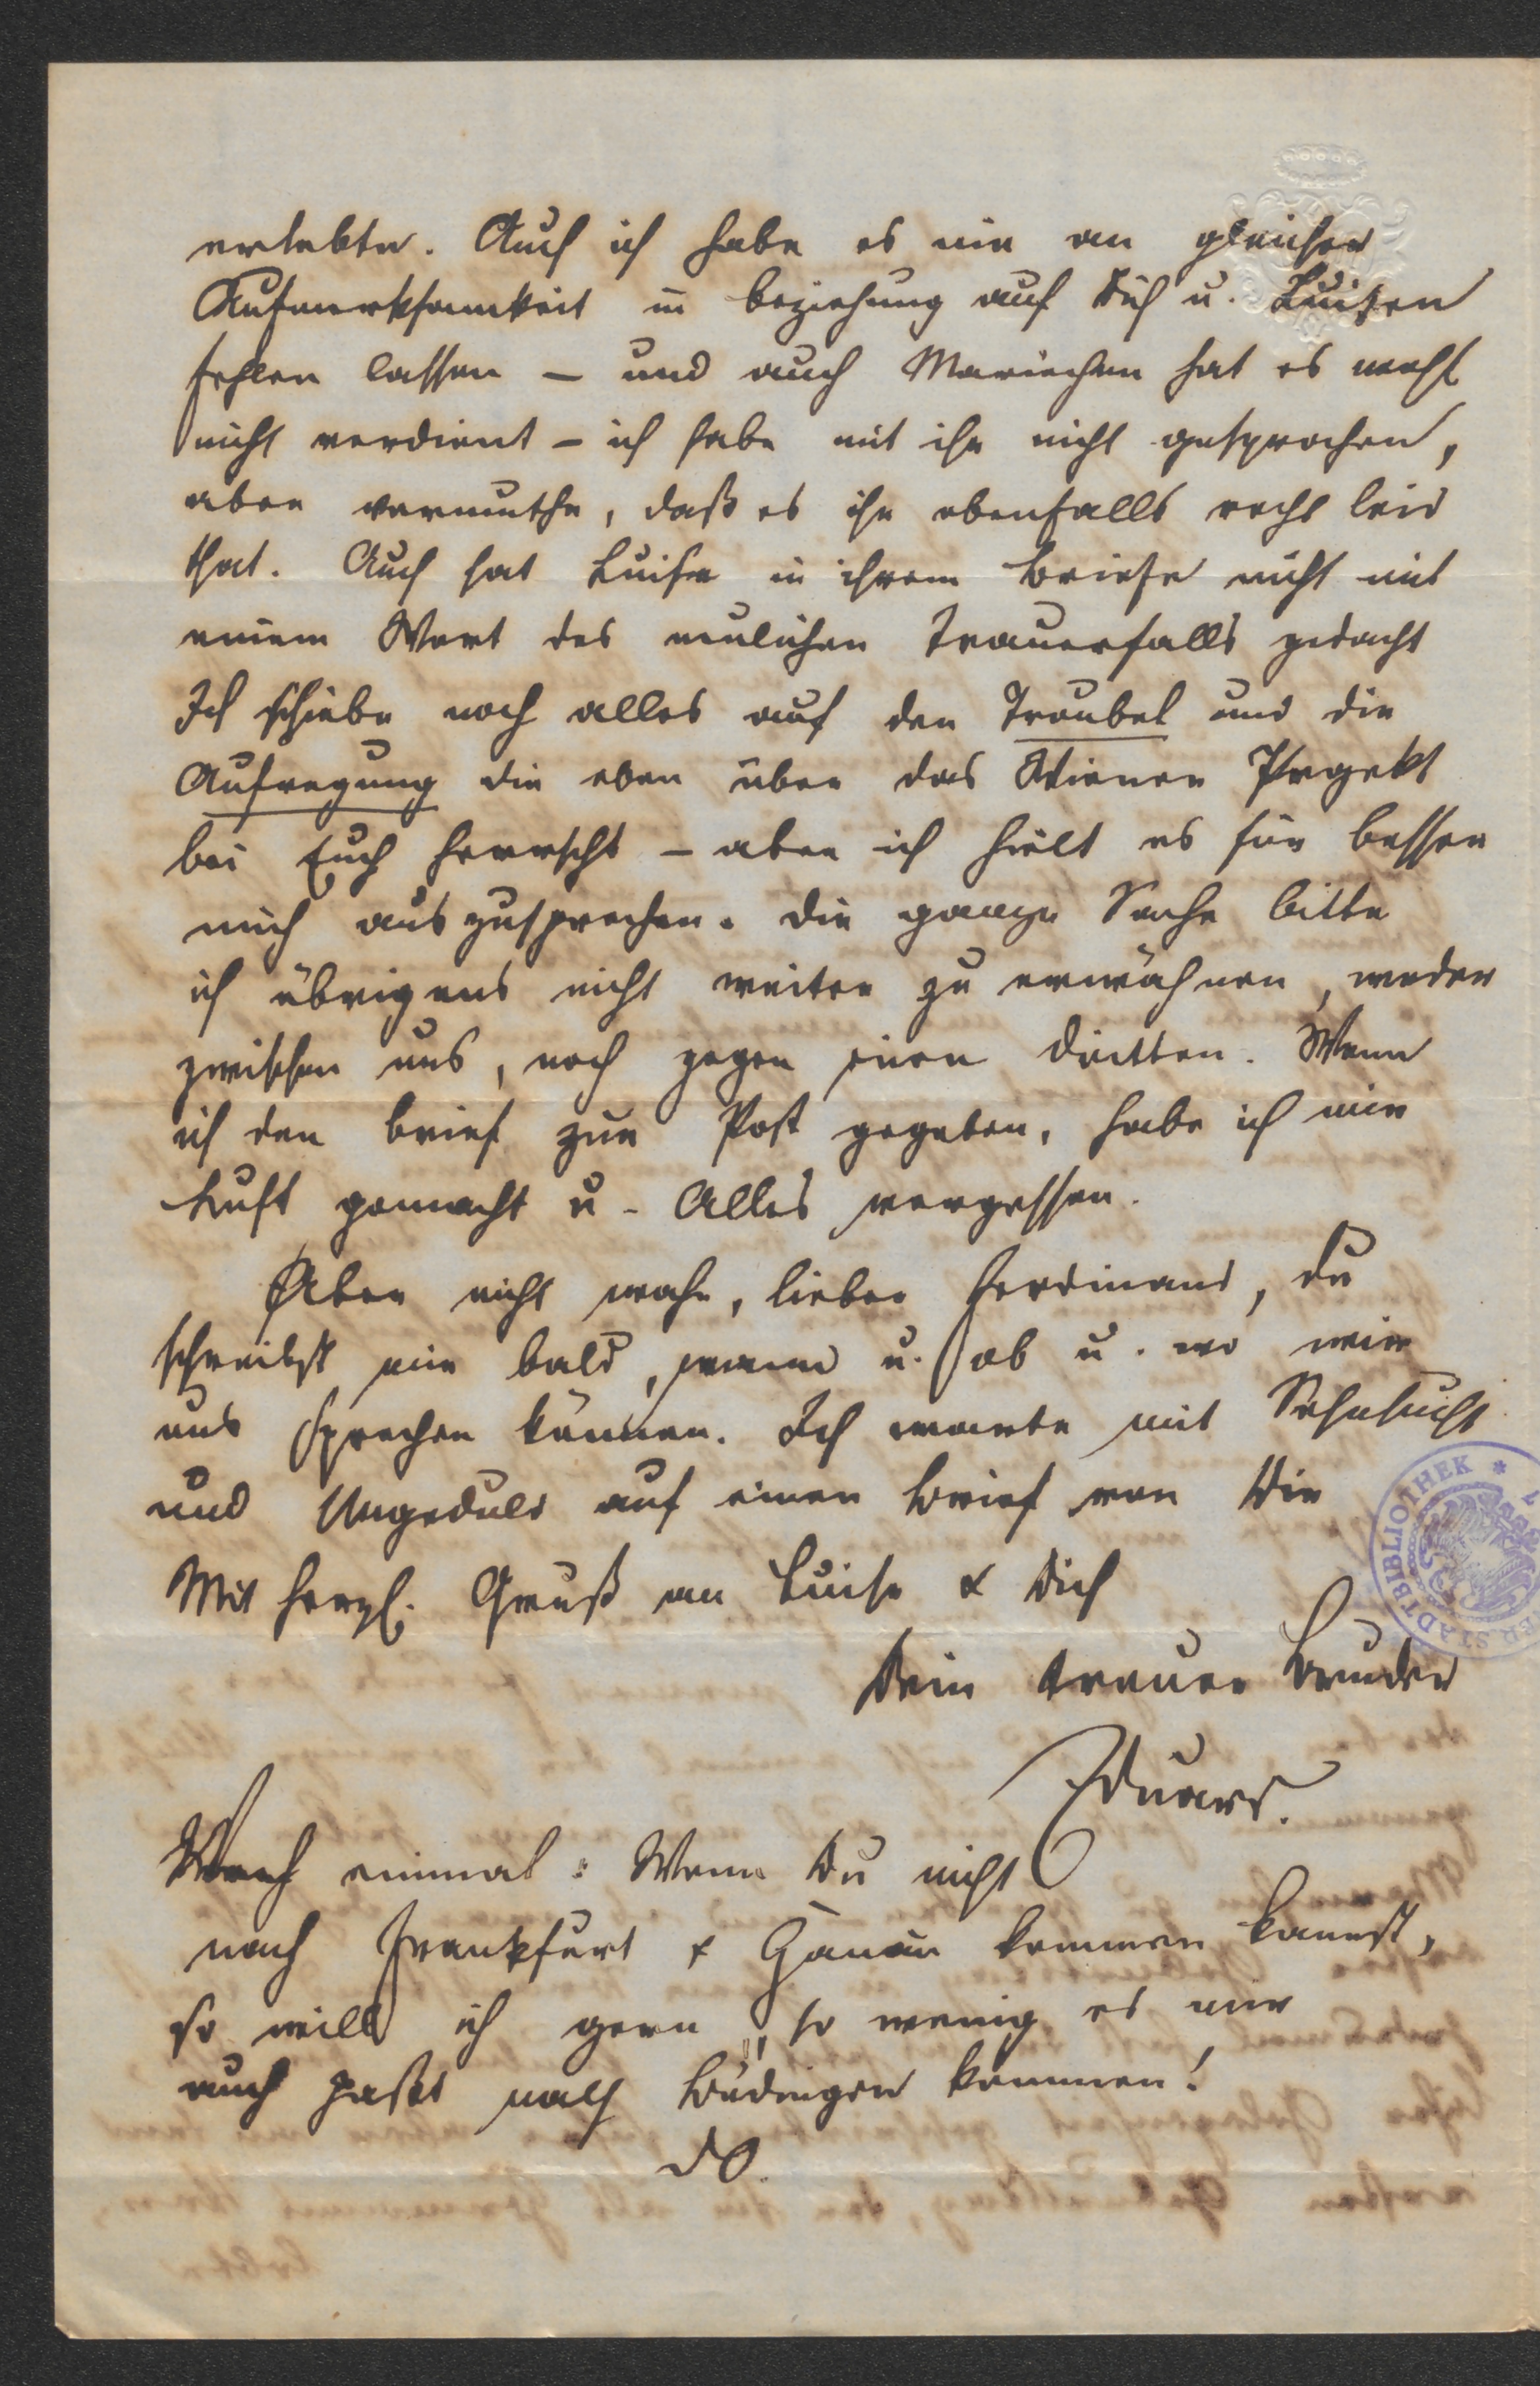 erlebte. Auch ich habe es nie an gleicher
Aufmerksamkeit in Beziehung auf Dich u. Luisen
fehlen lassen – und auch Mariechen hat es wohl
nicht verdient – ich habe mit ihr nicht gesprochen,
aber vermuthe, daß es ihr ebenfalls recht leid
that. Auch hat Luise in ihrem Briefe nicht mit
einem Wort des neulichen Trauerfalls gedacht
Ich schiebe noch alles auf den Troubel und die
Aufregung die eben über das Wiener Projekt
bei Euch herrscht – aber ich hielt es für besser
mich auszusprechen. Die ganze Sache bitte
ich übrigens nicht weiter zu erwähnen, weder
zwischen uns, noch gegen einen Dritten. Wenn
ich den Brief zur Post gegeben, habe ich mir
Luft gemacht u. Alles vergessen.
Aber nicht wahr, lieber Ferdinand, Du
schreibst mir bald, wann u. ob u. wo wir
uns sprechen können. Ich warte mit Sehnsucht
und Ungeduld auf einen Brief von Dir
Mit herzl. Gruß an Luise & Dich
Dein treuer Bruder
Eduard.
Noch einmal: Wenn Du nicht
nach Frankfurt & Hanau kommen kannst,
so will ich gern, so wenig es mir
auch paßt nach Büdingen kommen!
DO.
STADTBIBLIOTHEK